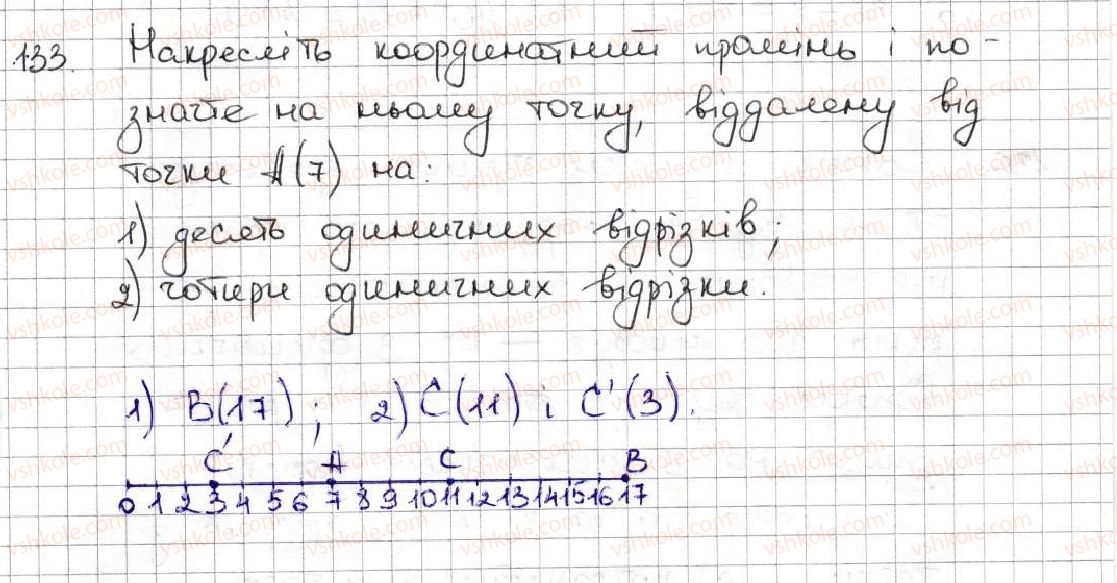 133. Накресліть координатний промінь і по-
значте на ньому точку, віддалену від
точки A(7) на:
1) десять одиничних відрізків;
2) чотири одиничних відрізки.
1) B(17); 2) C(11) і C'(3).
C' A C B
0 1 2 3 4 5 6 7 8 9 10 11 12 13 14 15 16 17
vshkole.com